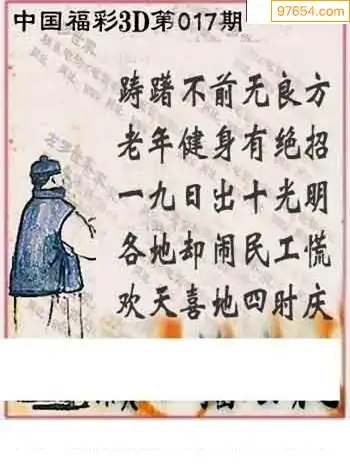 97654.com
中国福彩3D第017期
踌躇不前无良方
老年健身有绝招
一九日出十光明
各地却闹民工慌
欢天喜地四时庆